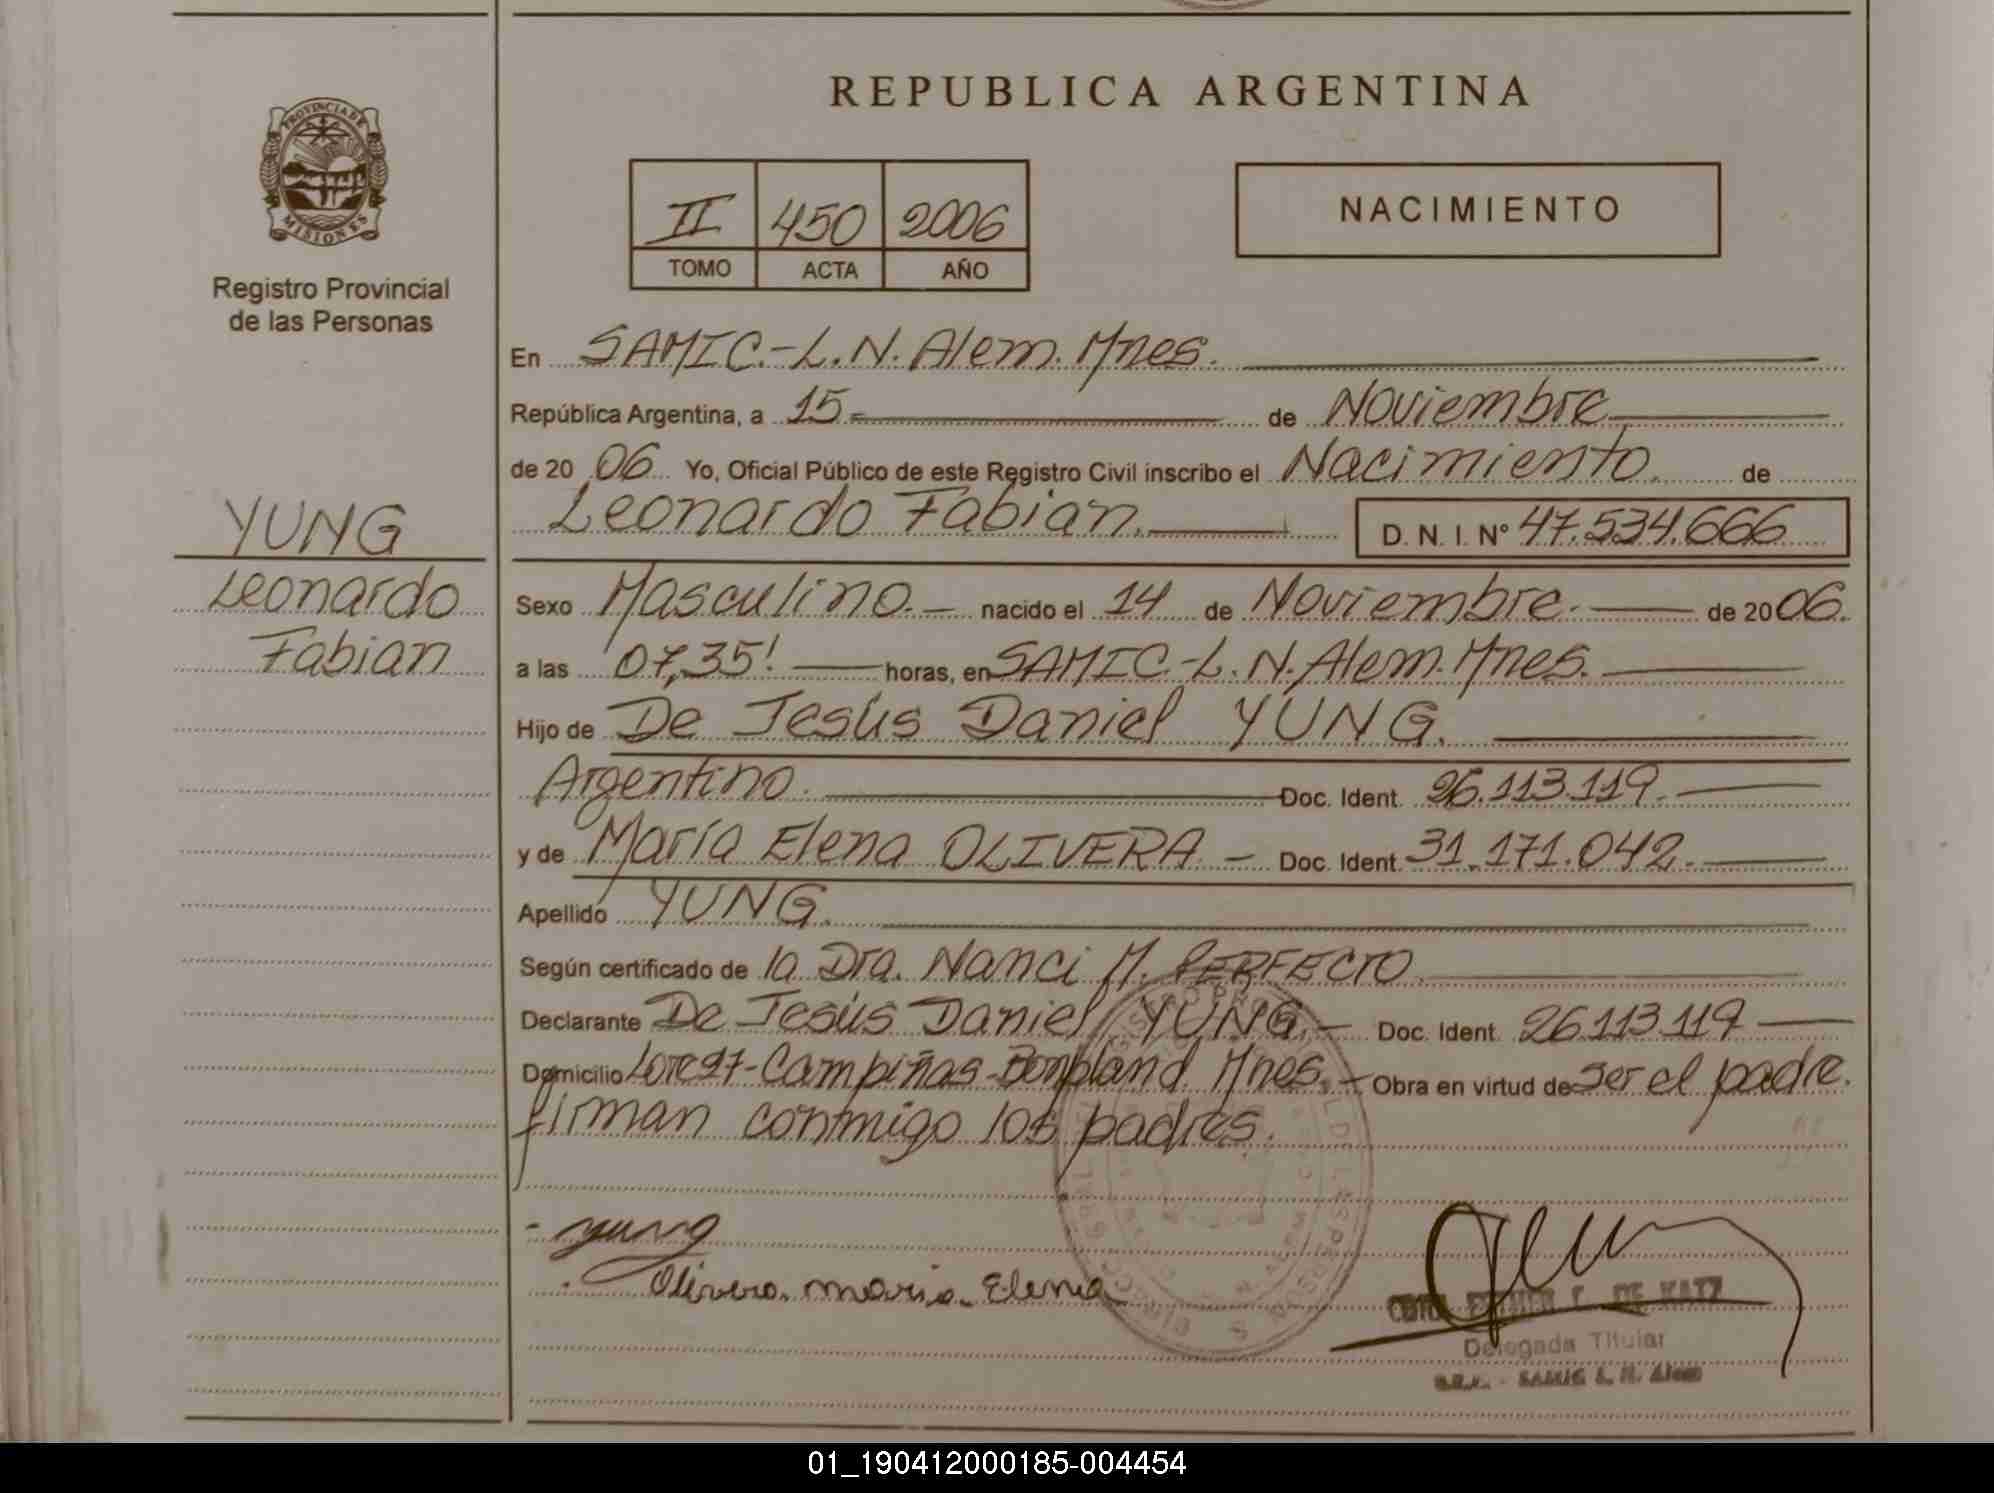 REPUBLICA ARGENTINA
PROVINCIA DE
MISIONES
Registro Provincial
de las Personas
II 450 2006
TOMO ACTA AÑO
NACIMIENTO
En SAMIC.-L.N. Alem. Mnes.
República Argentina, a 15 de Noviembre
de 2006 Yo, Oficial Público de este Registro Civil inscribo el Nacimiento. de
Leonardo Fabian. D. N. I. Nº 47.534.666
YUNG
Leonardo
Fabian
Sexo Masculino. nacido el 14 de Noviembre. de 2006.
a las 07,35! horas, en SAMIC-L.N. Alem. Mnes.
Hijo de De Jesús Daniel YUNG.
Argentino. Doc. Ident. 26.113.119.
y de María Elena OLIVERA - Doc. Ident. 31.171.042.
Apellido YUNG.
Según certificado de la Dra. Nanci M. PERFECTO
Declarante De Jesús Daniel YUNG.- Doc. Ident. 26.113.119
Domicilio Lote 97-Campiñas-Bonpland. Mnes.- Obra en virtud de ser el padre.
firman conmigo los padres.
- yung
Olivera. maria. Elena
DE KATZ
Delegada Titular
SAMIC L. N. Alem
01_190412000185-004454